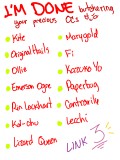 I'M DONE butchering
your precious OCs tho
Kite
Original Pauls
Ollie
Emerson Cope
Pan Lockhart
Kat-shu
Lizard Queen
Marygold
Fi
Katsumo Yo
Papertong
Controville
Leachi
LINK 3